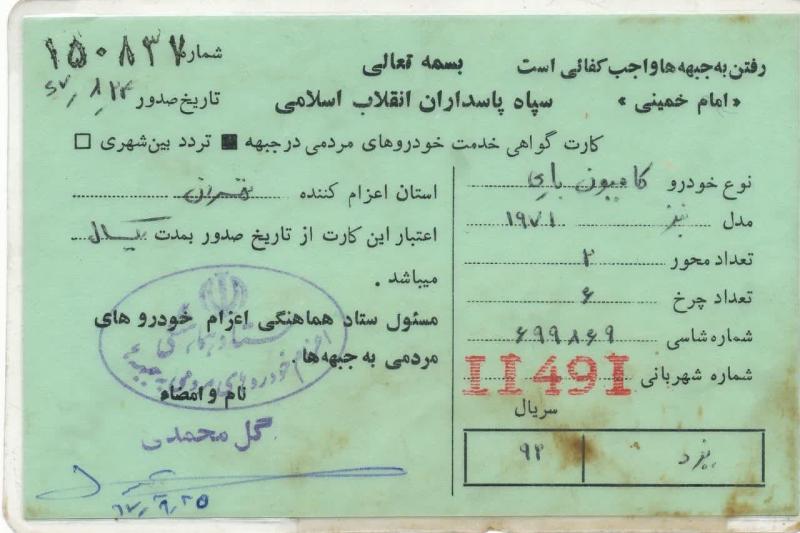 رفتن به جبهه ها واجب کفائی است
«امام خمینی»
بسمه تعالی
سپاه پاسداران انقلاب اسلامی
شماره ۱۵۰۸۳۷
تاریخ صدور
کارت گواهی خدمت خودروهای مردمی در جبهه ■ تردد بین شهری □
نوع خودرو کامیون باری
مدل بنز ۱۹۷۱
تعداد محور ۲
تعداد چرخ ۶
شماره شاسی ۶۹۹۸۶۹
شماره شهربانی 11491
سریال
یزد ۹۲
استان اعزام کننده
اعتبار این کارت از تاریخ صدور بمدت یکسال
میباشد .
مسئول ستاد هماهنگی اعزام خودرو های
مردمی به جبهه ها .
ستاد هماهنگی
اعزام خودروهای مردمی به جبهه ها
نام و امضاء
گل محمدی